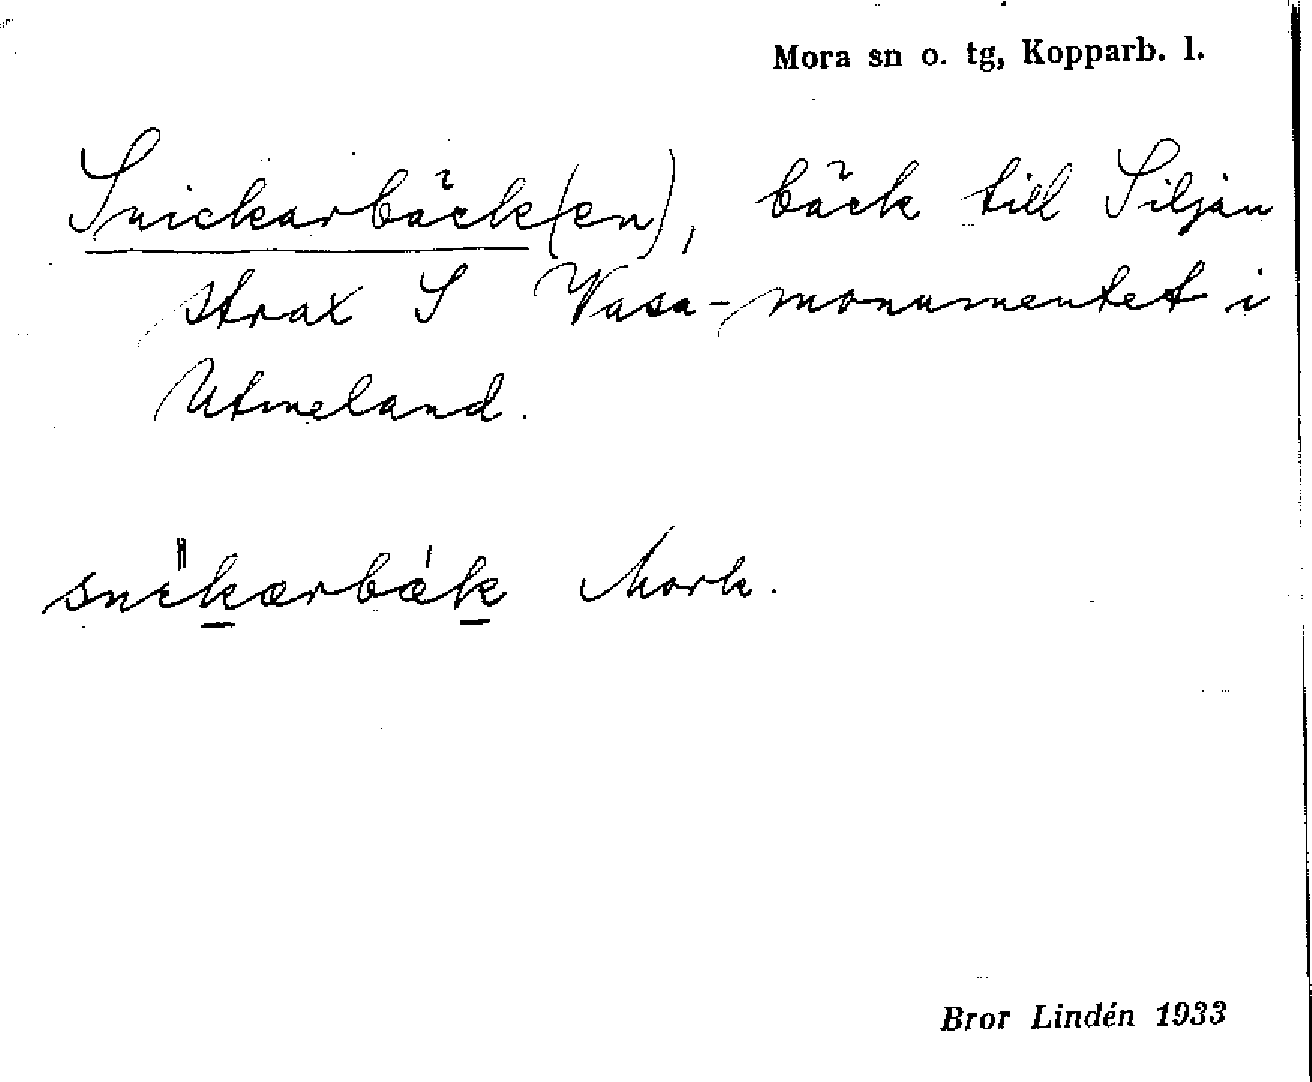 Mora sn o. tg, Kopparb. l.
Snickarbäck(en), bäck till Siljan
strax S Vasa-monumentet i
Utmeland.
snikærbæk Mork.
Bror Lindén 1933